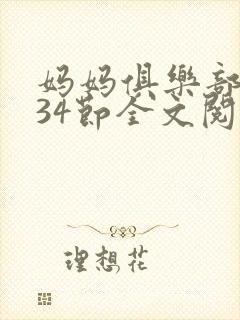 妈妈俱樂部
34节全文閱
理想花